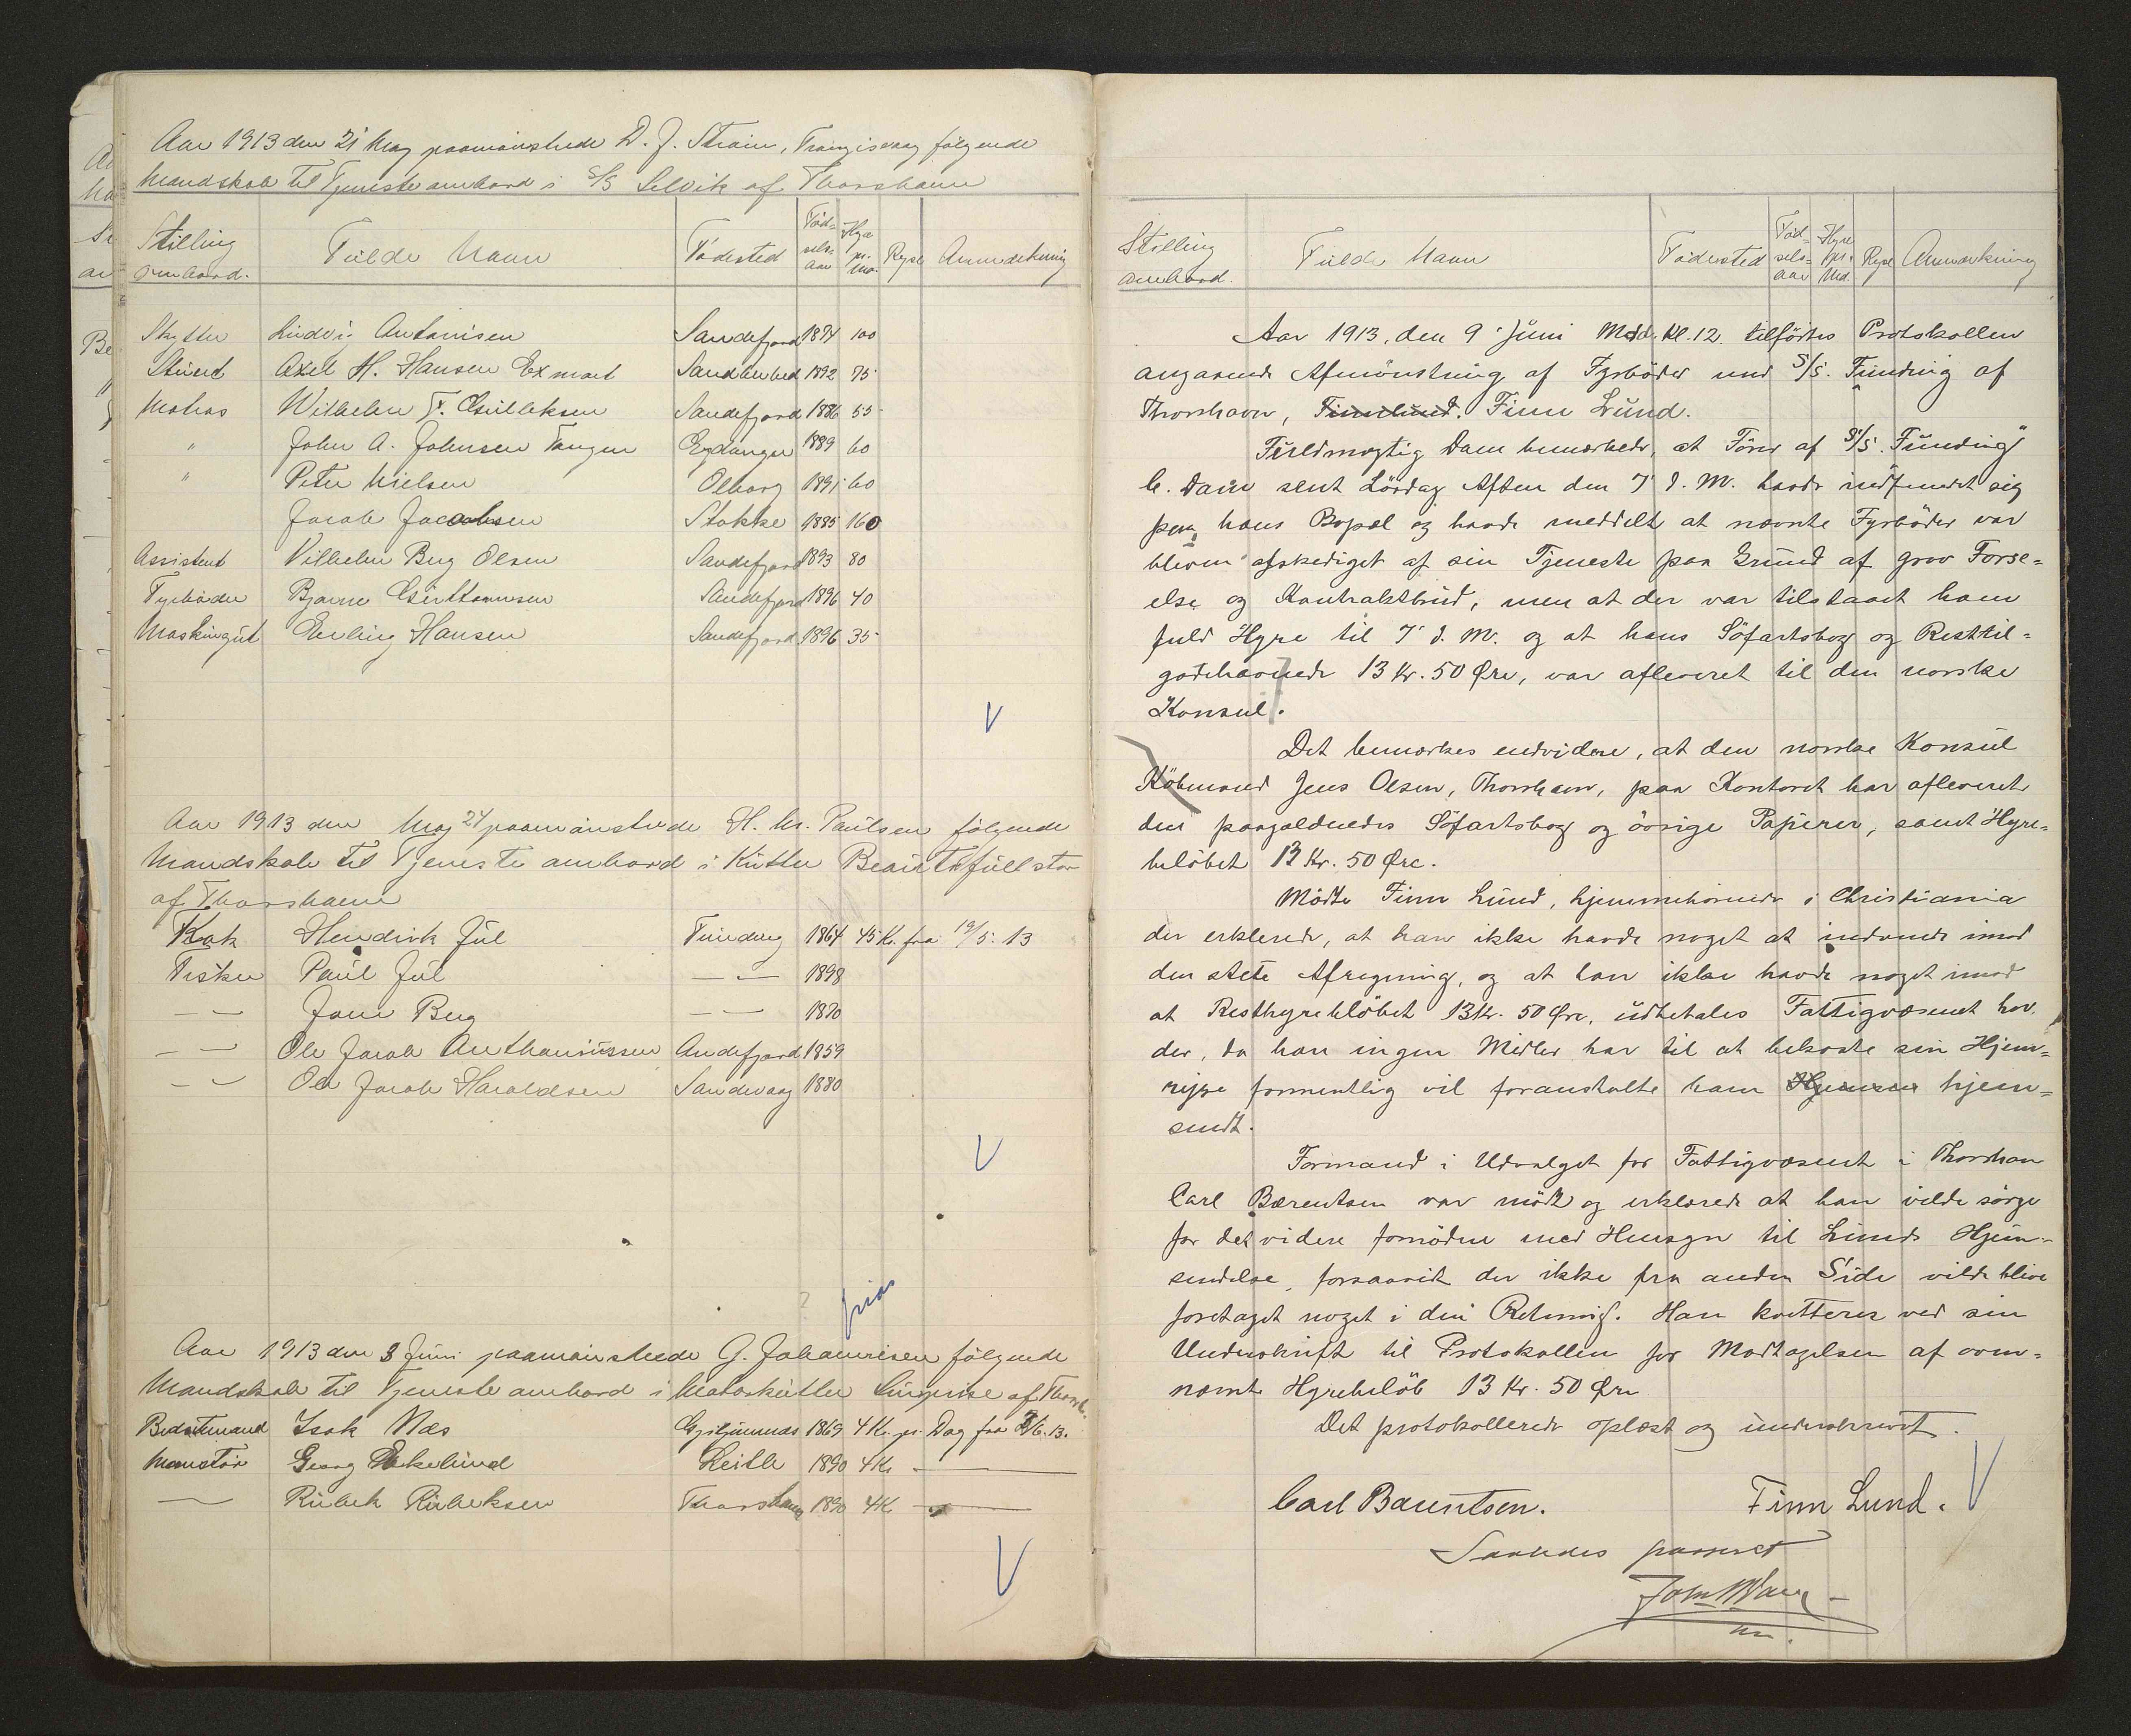 Aar 1913 den 21 Maj paamønstrede D. J. Strøm, Trangisvaag følgende
Mandskab til Tjeneste ombord i S/S Selvik af Thorshavn
Stilling ombord. Fulde Navn Fødested Fød=sels=aar Hyre pr. Md. Rejse Anmærkning
Skytter Ludvig Antonisen Sandefjord 1874 100
Stuert Axel H. Hansen 1892 75
Matros Wilhelm F. Sandefjord 1886 55
" John A. Johnsen Tangen Eydanger 1889 60
" Peter Nielsen Olborg 1891 60
Jacob Jacobsen Stokke 1885 160
Assistent Vilhelm Berg Olsen Sandefjord 1893 80
Fyrbøder Bjarne Sandefjord 1896 40
Maskingut Erling Hansen Sandefjord 1896 35
Aar 1913 den Maj 24 paamønstrede H. M. Paulsen følgende
Mandskab til Tjeneste ombord i Kutter Beautifull star
af Thorshavn
Kok Hendrik Jul Funding 1864 45 Kr. fra 19/5. 13
Fisker Paul Jul — — 1898
— — Berg — — 1870
— — Ole Jacob Andefjord 1859
— — Ole Jacob Haraldsen Sandevaag 1880
Aar 1913 den 3 Juni paamønstrede G. Johannesen følgende
Mandskab til Tjeneste ombord i Motorkutter Surprise af Thorsh.
Bedstemand Isak Næs 1869 4 Kr. pr. Dag fra 3/6. 13.
Georg Ekelund Leith 1890 4 Kr —
— Rubek Rubeksen Thorshavn 1890 4 Kr —
Stilling ombord. Fulde Navn Fødested Fød=sels=aar Hyre pr. Md. Rejse Anmærkning
Aar 1913, den 9 Juni Midd. Kl. 12. tilførtes Protokollen
angaaende Afmønstring af Fyrbøder med S/S. Funding af
Thorshavn, Finnlund. Finn Lund.
Fuldmægtig Dam bemærkede, at Fører af S/S. Funding"
C. Dam sent Lørdag Aften den 7 d. M. havde indfundet sig
paa hans Bopæl og havde meddelt at nævnte Fyrbøder var
bleven afskediget af sin Tjeneste paa Grund af grov Forse=
else og Kontraktbrud, men at der var tilstaaet ham
fuld Hyre til 7 d. M. og at hans Søfartsbog og Resttil=
godehavende 13 Kr. 50 Øre, var afleveret til den norske
Konsul.
Det bemærkes endvidere, at den norske Konsul
Købmand Jens Olsen, Thorshavn, paa Kontoret har afleveret
den paagældendes Søfartsbog og øvrige Papirer, samt Hyre=
beløbet 13 Kr. 50 Øre.
Mødte Finn Lund, hjemmehørende i Christiania
der erklerede, at han ikke havde noget at indvende imod
den Afregning, og at han ikke havde noget imod
at Resthyrebeløbet 13 Kr. 50 Øre, udbetales Fattigvæsenet her,
der, da han ingen Midler har til at bekoste sin Hjem=
rejse formentlig vil foranstalte ham hjem=
sendt.
Formand i Udvalget for Fattigvæsenet i Thorshavn
Carl Bærentsen var mødt og erklærede at han vilde sørge
for det videre fornødne med Hensyn til Lunds Hjem=
sendelse, forsaavidt der ikke fra anden Side vilde blive
foretaget noget i den Retning. Han kvitterer ved sin
Underskrift til Protokollen for Modtagelsen af oven=
nævnte Hyrebeløb 13 Kr. 50 Øre
Det protokollerede oplæst og underskrevet.
Carl Bærentsen. Finn Lund.
Saaledes passeret